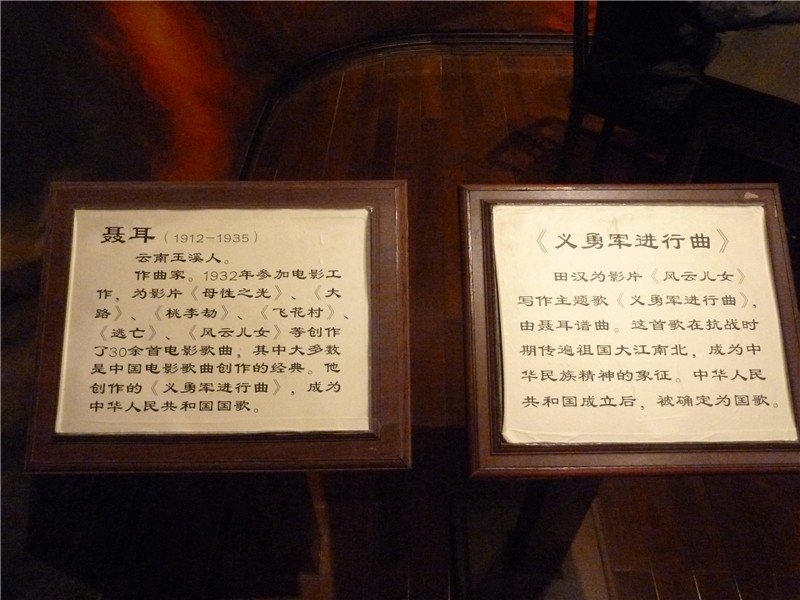 聂耳（1912-1935）
云南玉溪人。
作曲家。1932年参加电影工
作，为影片《母性之光》、《大
路》、《桃李劫》、《飞花村》、
《逃亡》、《风云儿女》等创作
了30余首电影歌曲，其中大多数
是中国电影歌曲创作的经典。他
创作的《义勇军进行曲》，成为
中华人民共和国国歌。
《义勇军进行曲》
田汉为影片《风云儿女》
写作主题歌《义勇军进行曲》，
由聂耳谱曲。这首歌在抗战时
期传遍祖国大江南北，成为中
华民族精神的象征。中华人民
共和国成立后，被确定为国歌。